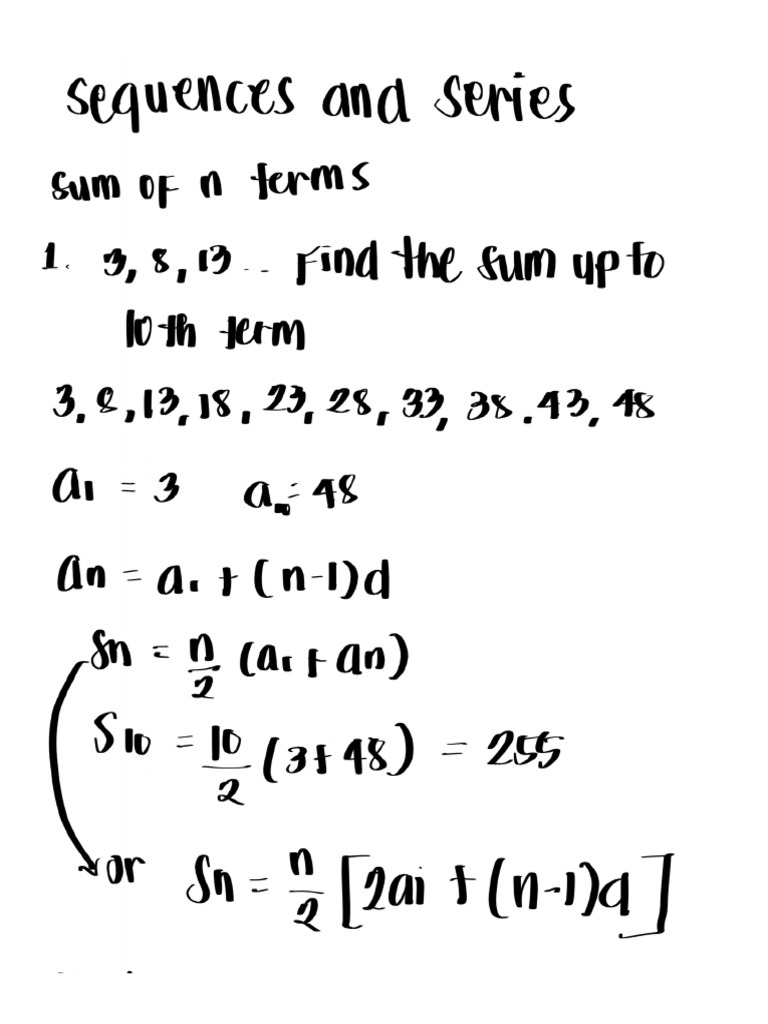 sequences and series
sum of n terms
1. 3, 8, 13 ... Find the sum up to
10th term
3, 8, 13, 18, 23, 28, 33, 38, 43, 48
a1 = 3 a10 = 48
an = a1 + (n-1)d
Sn = n/2 (a1 + an)
S10 = 10/2 (3+48) = 255
or Sn = n/2 [2a1 + (n-1)d]